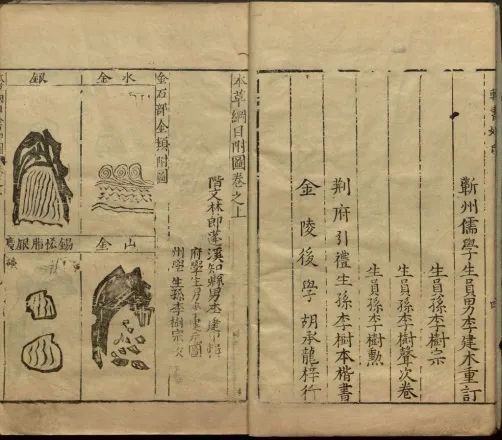 蘄州儒學生員男李建木重訂
生員孫李樹宗
生員孫李樹聲次卷
生員孫李樹勳
荆府引禮生孫李樹本楷書
金陵後學胡承龍梓行
本草綱目附圖卷之上
階文林郎蓬溪知縣男李建中輯
府學生男李建元圖
州學生孫李樹宗
金石部金類附圖
水金
山金
銀
錫恡脂銀